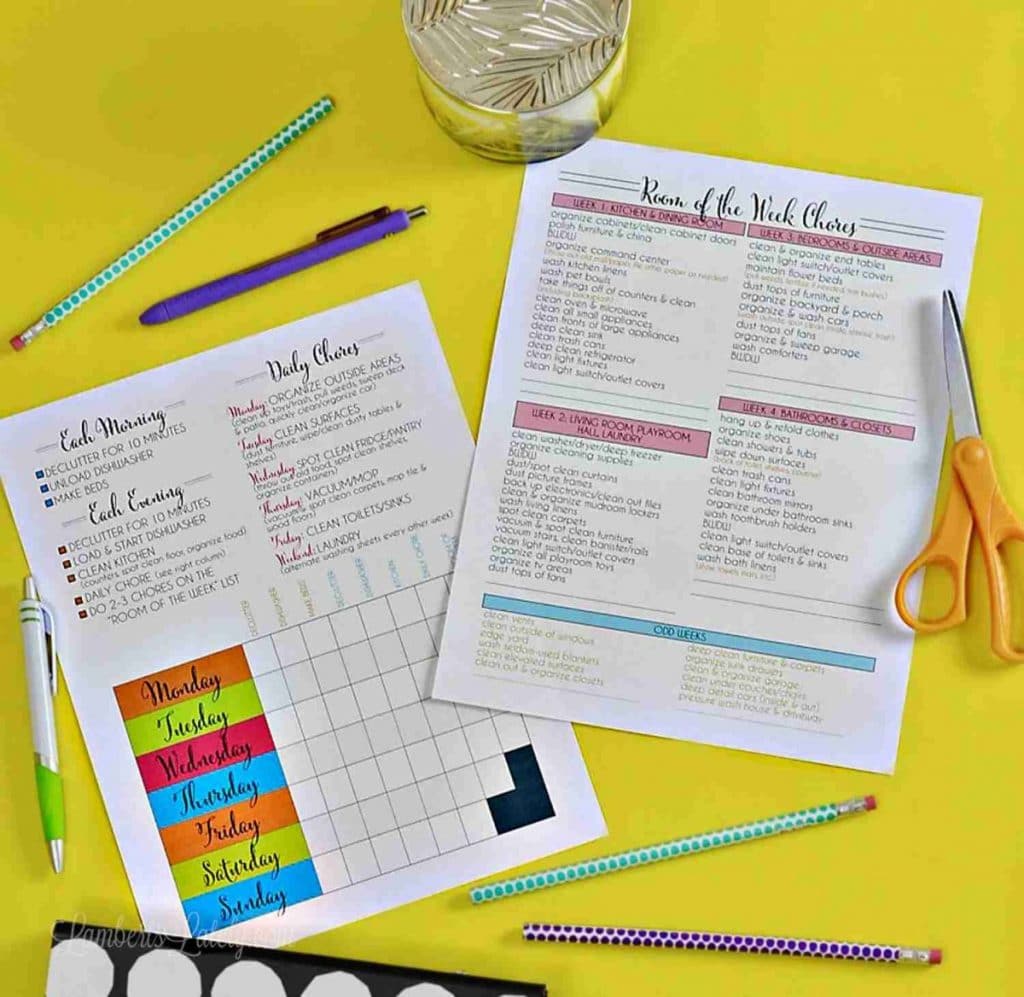 Room of the Week Chores
WEEK 1: KITCHEN & DINING ROOM
organize cabinets/clean cabinet doors
polish furniture & china
BWDW
organize command center
wash kitchen linens
wash pet bowls
take things off of counters & clean
(including backsplash)
clean oven & microwave
clean all small appliances
clean fronts of large appliances
clean trash cans
deep clean sink
deep clean refrigerator
clean light fixtures
clean light switch/outlet covers
WEEK 3: BEDROOMS & OUTSIDE AREAS
clean & organize end tables
clean light switch/outlet covers
maintain flower beds
dust tops of furniture
organize backyard & porch
organize & wash cars
dust tops of fans
organize & sweep garage
wash comforters
BWDW
WEEK 2: LIVING ROOM, PLAYROOM,
HALL, LAUNDRY
clean washer/dryer/deep freezer
organize cleaning supplies
BWDW
dust/spot clean curtains
dust picture frames
back up electronics/clean out files
clean & organize mudroom lockers
wash living linens
spot clean carpets
vacuum & spot clean furniture
vacuum stairs, clean banister/rails
clean light switch/outlet covers
organize all playroom toys
organize tv areas
dust tops of fans
WEEK 4: BATHROOMS & CLOSETS
hang up & refold clothes
organize shoes
clean showers & tubs
wipe down surfaces
clean trash cans
clean light fixtures
clean bathroom mirrors
organize under bathroom sinks
wash toothbrush holders
BWDW
clean light switch/outlet covers
clean base of toilets & sinks
wash bath linens
ODD WEEKS
clean vents
clean outside of windows
edge yard
wash seldom-used blankets
clean elevated surfaces
clean out & organize closets
deep clean furniture & carpets
organize junk drawers
clean & organize garage
clean under couches/chairs
deep detail cars (inside & out)
pressure wash house & driveway
Each Morning
DECLUTTER FOR 10 MINUTES
UNLOAD DISHWASHER
MAKE BEDS
Each Evening
DECLUTTER FOR 10 MINUTES
LOAD & START DISHWASHER
CLEAN KITCHEN
(counters, spot clean floor, organize food)
DAILY CHORE (see right column)
DO 2-3 CHORES ON THE
"ROOM OF THE WEEK" LIST
Daily Chores
Monday: ORGANIZE OUTSIDE AREAS
(clean up toys/trash, pull weeds, sweep deck
& patio, quickly clean/organize car)
Tuesday: CLEAN SURFACES
(dust furniture, wipe/clean dusty tables &
shelves)
Wednesday: SPOT CLEAN FRIDGE/PANTRY
(throw out old food, spot clean shelves,
organize containers)
Thursday: VACUUM/MOP
(vacuum & spot clean carpets, mop tile &
wood floors)
Friday: CLEAN TOILETS/SINKS
Weekend: LAUNDRY
(alternate washing sheets every other week)
DECLUTTER
DISHWASHER
MAKE BEDS
DECLUTTER
DISHWASHER
KITCHEN
DAILY CHORE
Monday
Tuesday
Wednesday
Thursday
Friday
Saturday
Sunday
Lamberts Lately.com